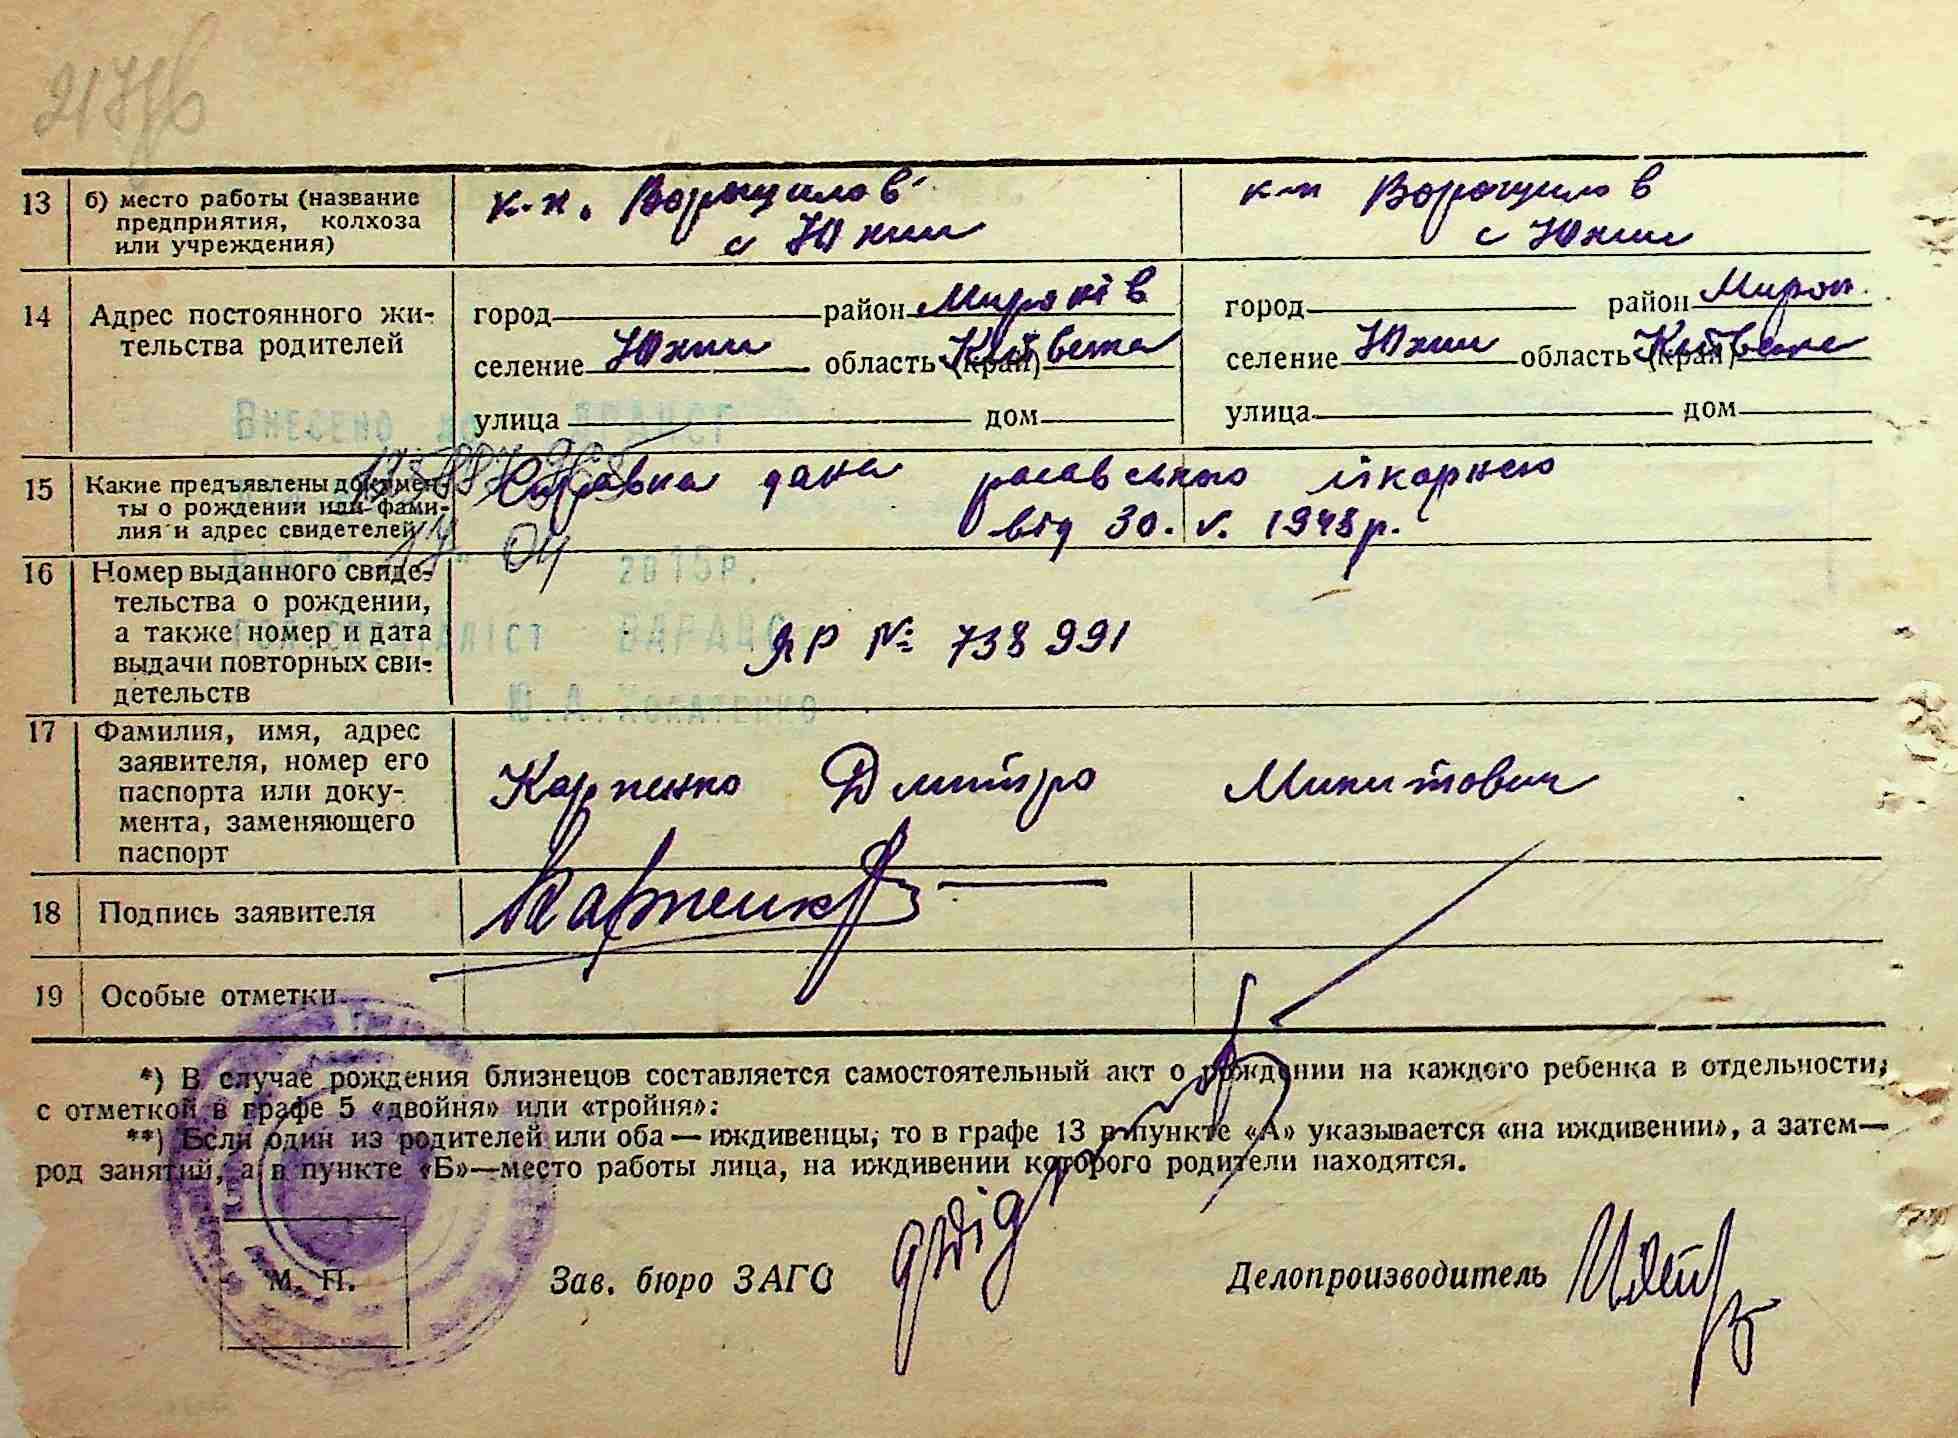 13 б) место работы (название
предприятия, колхоза
или учреждения)
к-п. Ворошилов
с Юхни
к-п Ворошилов
с Юхни
14 Адрес постоянного жи-
тельства родителей
город район Миронів
селение Юхни область (край) Київська
улица дом
город район Мирон.
селение Юхни область (край) Київська
улица дом
Внесено до ДРАЦСГ
15 Какие предъявлены докумен-
ты о рождении или фами-
лия и адрес свидетелей
Справка дана расавською лікарнею
від 30. V. 1948 р.
04 2015р.
16 Номер выданного свиде-
тельства о рождении,
а также номер и дата
выдачи повторных сви-
детельств
ЯР № 738991
17 Фамилия, имя, адрес
заявителя, номер его
паспорта или доку-
мента, заменяющего
паспорт
Карпенко Дмитро Микитович
18 Подпись заявителя
Карпенко
19 Особые отметки
*) В случае рождения близнецов составляется самостоятельный акт о рождении на каждого ребенка в отдельности,
с отметкой в графе 5 «двойня» или «тройня»:
**) Если один из родителей или оба — иждивенцы, то в графе 13 в пункте «А» указывается «на иждивении», а затем—
род занятий, а в пункте «Б»—место работы лица, на иждивении которого родители находятся.
М. П.
Зав. бюро ЗАГС
Делопроизводитель